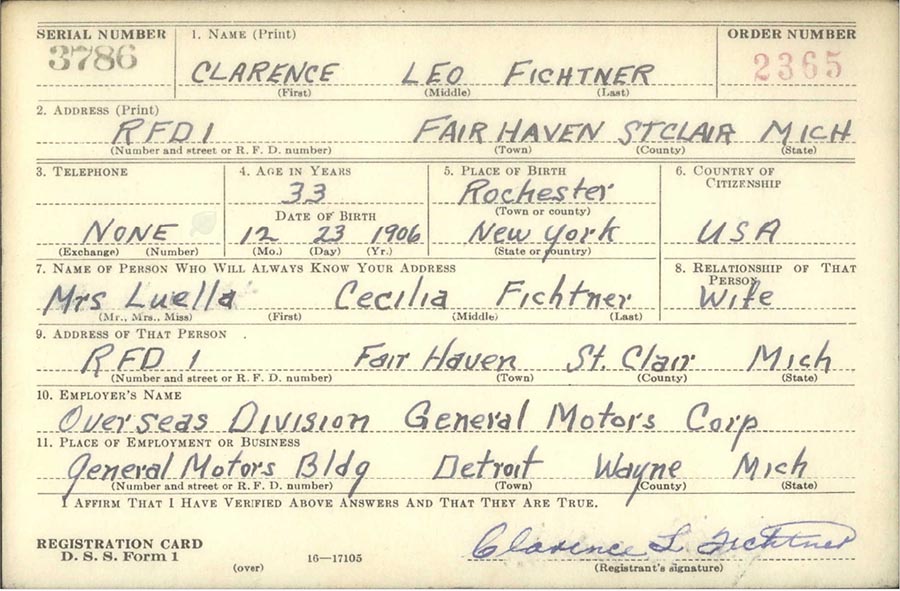 SERIAL NUMBER 1. NAME (Print) ORDER NUMBER
3786 CLARENCE LEO FICHTNER 2365
(First) (Middle) (Last)
2. ADDRESS (Print)
RFD 1 FAIR HAVEN ST CLAIR MICH
(Number and street or R. F. D. number) (Town) (County) (State)
3. TELEPHONE 4. AGE IN YEARS 5. PLACE OF BIRTH 6. COUNTRY OF
CITIZENSHIP
33 Rochester
DATE OF BIRTH (Town or county)
NONE 12 23 1906 New York USA
(Exchange) (Number) (Mo.) (Day) (Yr.) (State or country)
7. NAME OF PERSON WHO WILL ALWAYS KNOW YOUR ADDRESS 8. RELATIONSHIP OF THAT
PERSON
Mrs Luella Cecilia Fichtner Wife
(Mr., Mrs., Miss) (First) (Middle) (Last)
9. ADDRESS OF THAT PERSON
RFD 1 Fair Haven St. Clair Mich
(Number and street or R. F. D. number) (Town) (County) (State)
10. EMPLOYER'S NAME
Overseas Division General Motors Corp
11. PLACE OF EMPLOYMENT OR BUSINESS
General Motors Bldg Detroit Wayne Mich
(Number and street or R. F. D. number) (Town) (County) (State)
I AFFIRM THAT I HAVE VERIFIED ABOVE ANSWERS AND THAT THEY ARE TRUE.
REGISTRATION CARD
D. S. S. Form 1 16—17105 Clarence L. Fichtner
(over) (Registrant's signature)